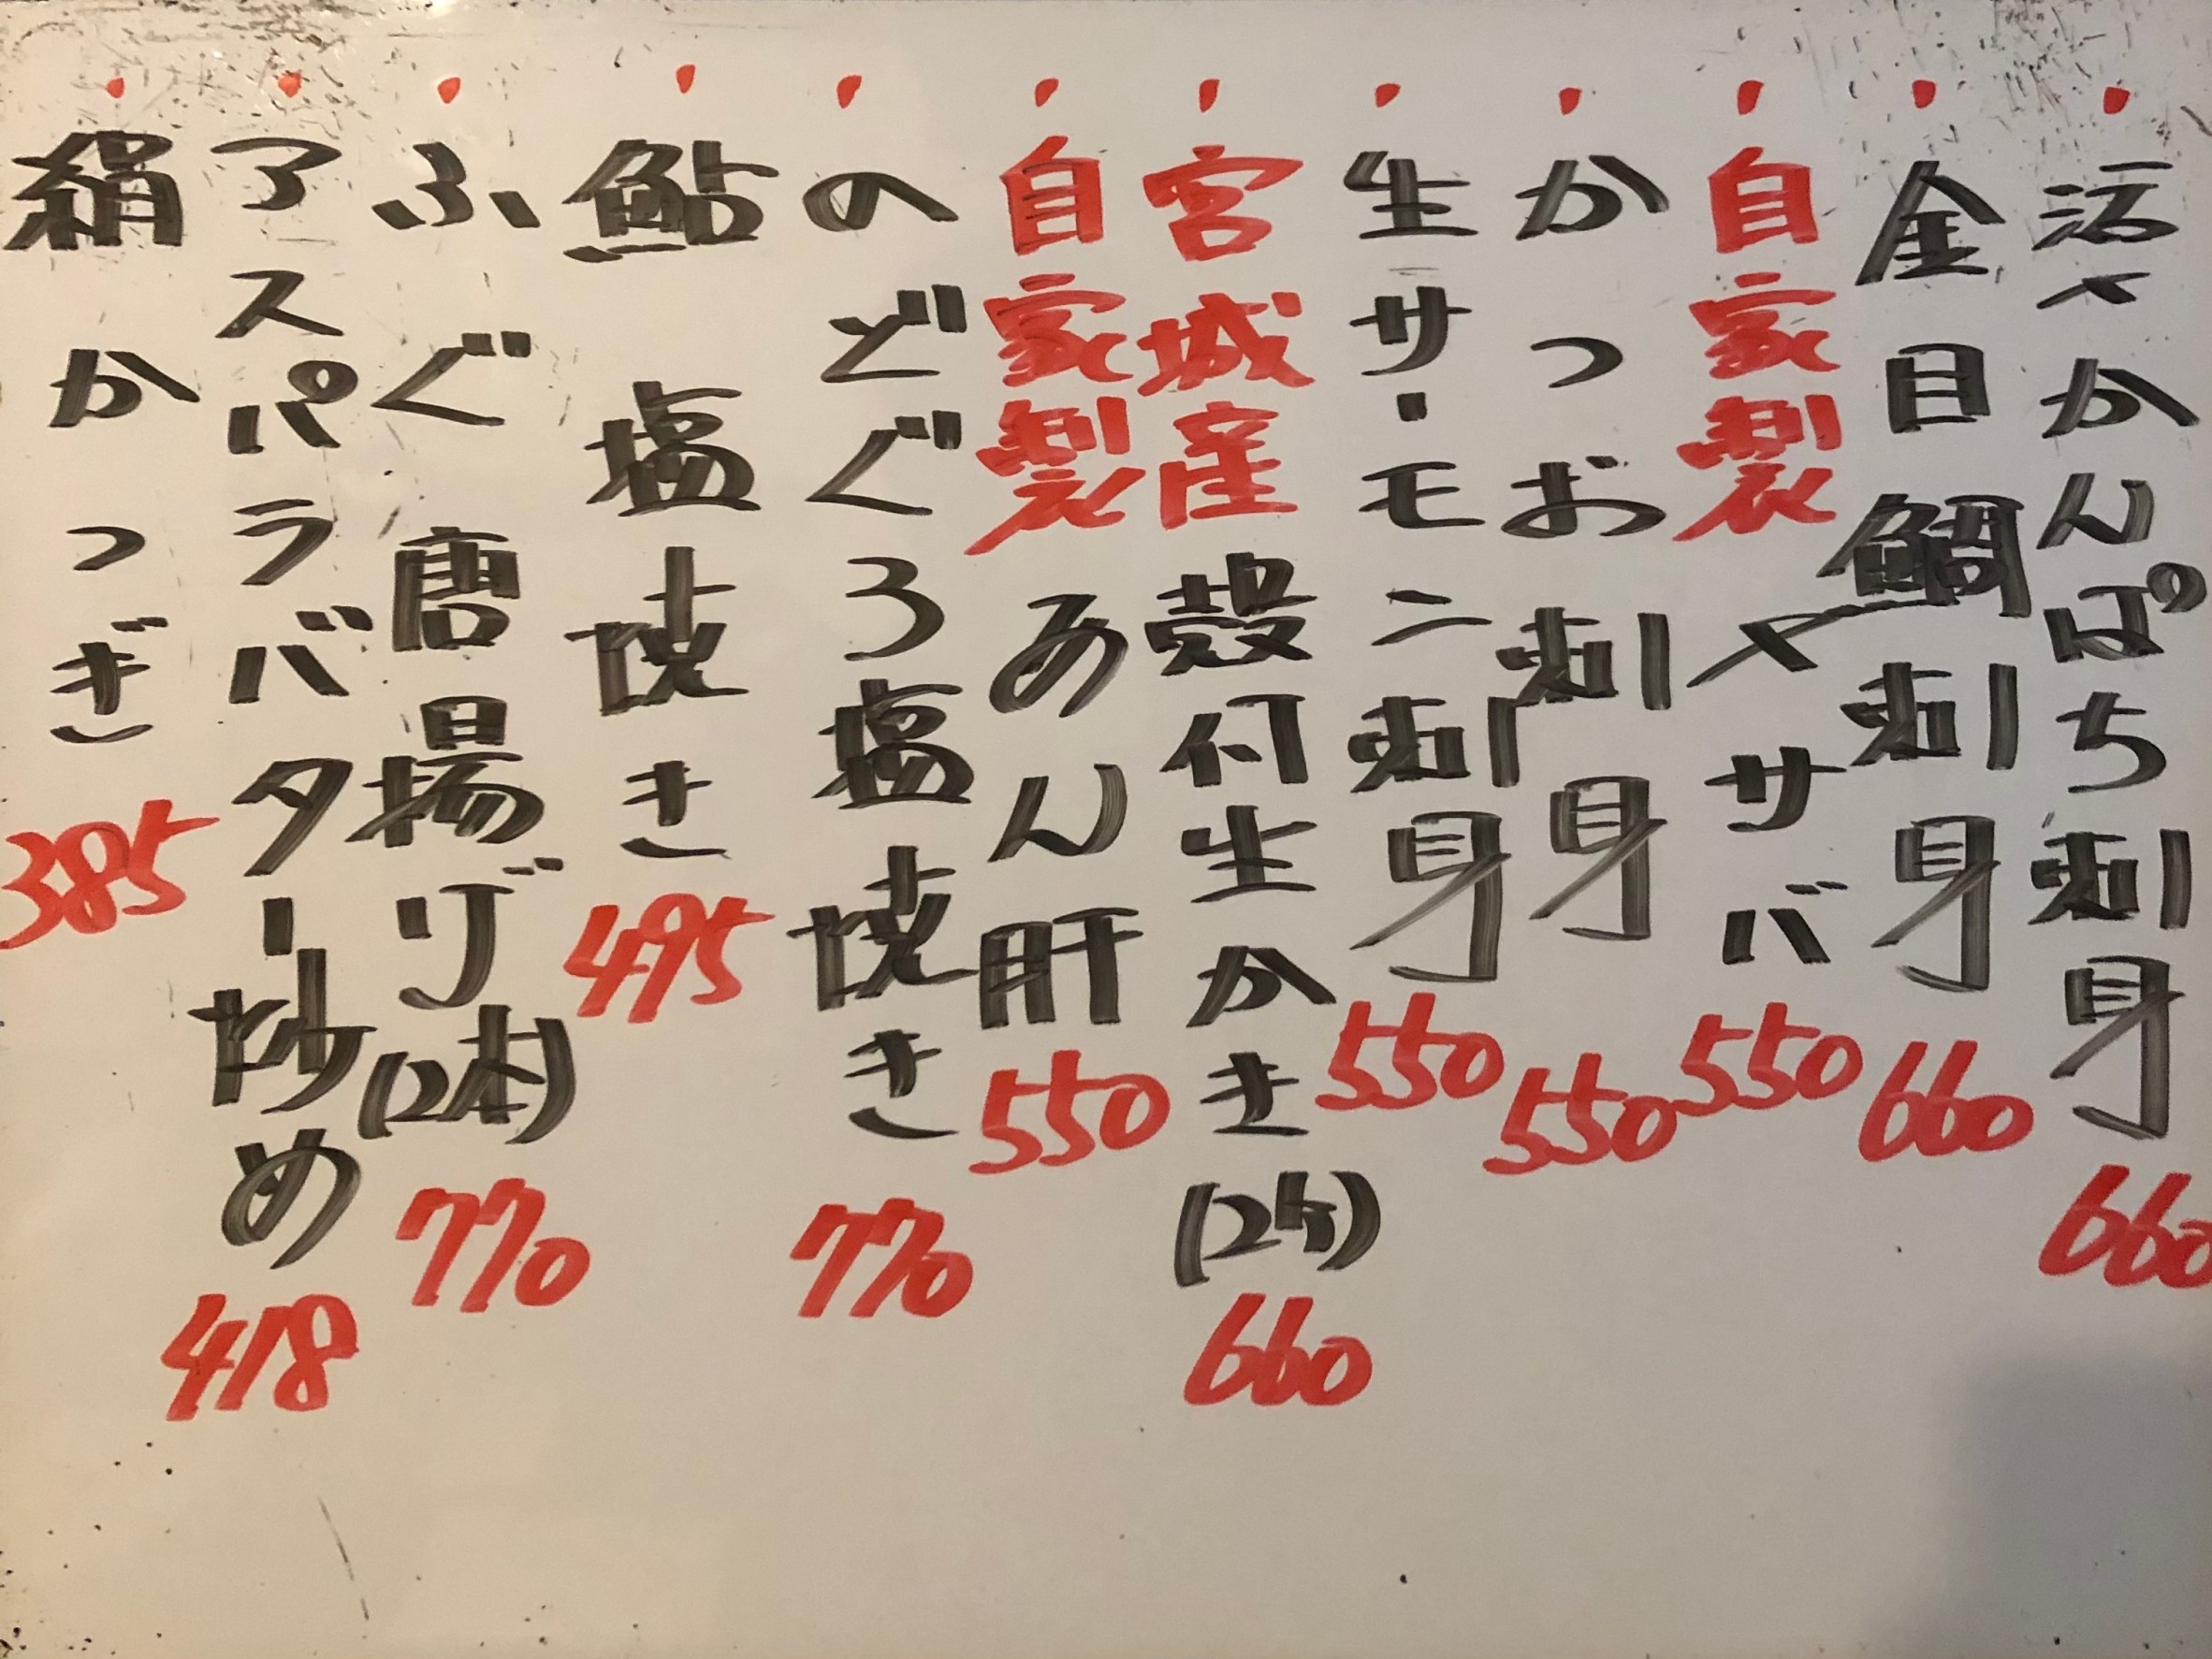 ・活〆かんぱち刺身 660
・金目鯛刺身 660
・自家製〆サバ 550
・かつお刺身 550
・生サーモン刺身 550
・宮城産殻付生かき(2ヶ) 660
・自家製あん肝 550
・のどぐろ塩焼き 770
・鮎塩焼き 495
・ふぐ唐揚げ(2本) 770
・アスパラバター炒め 418
・絹かつぎ 385